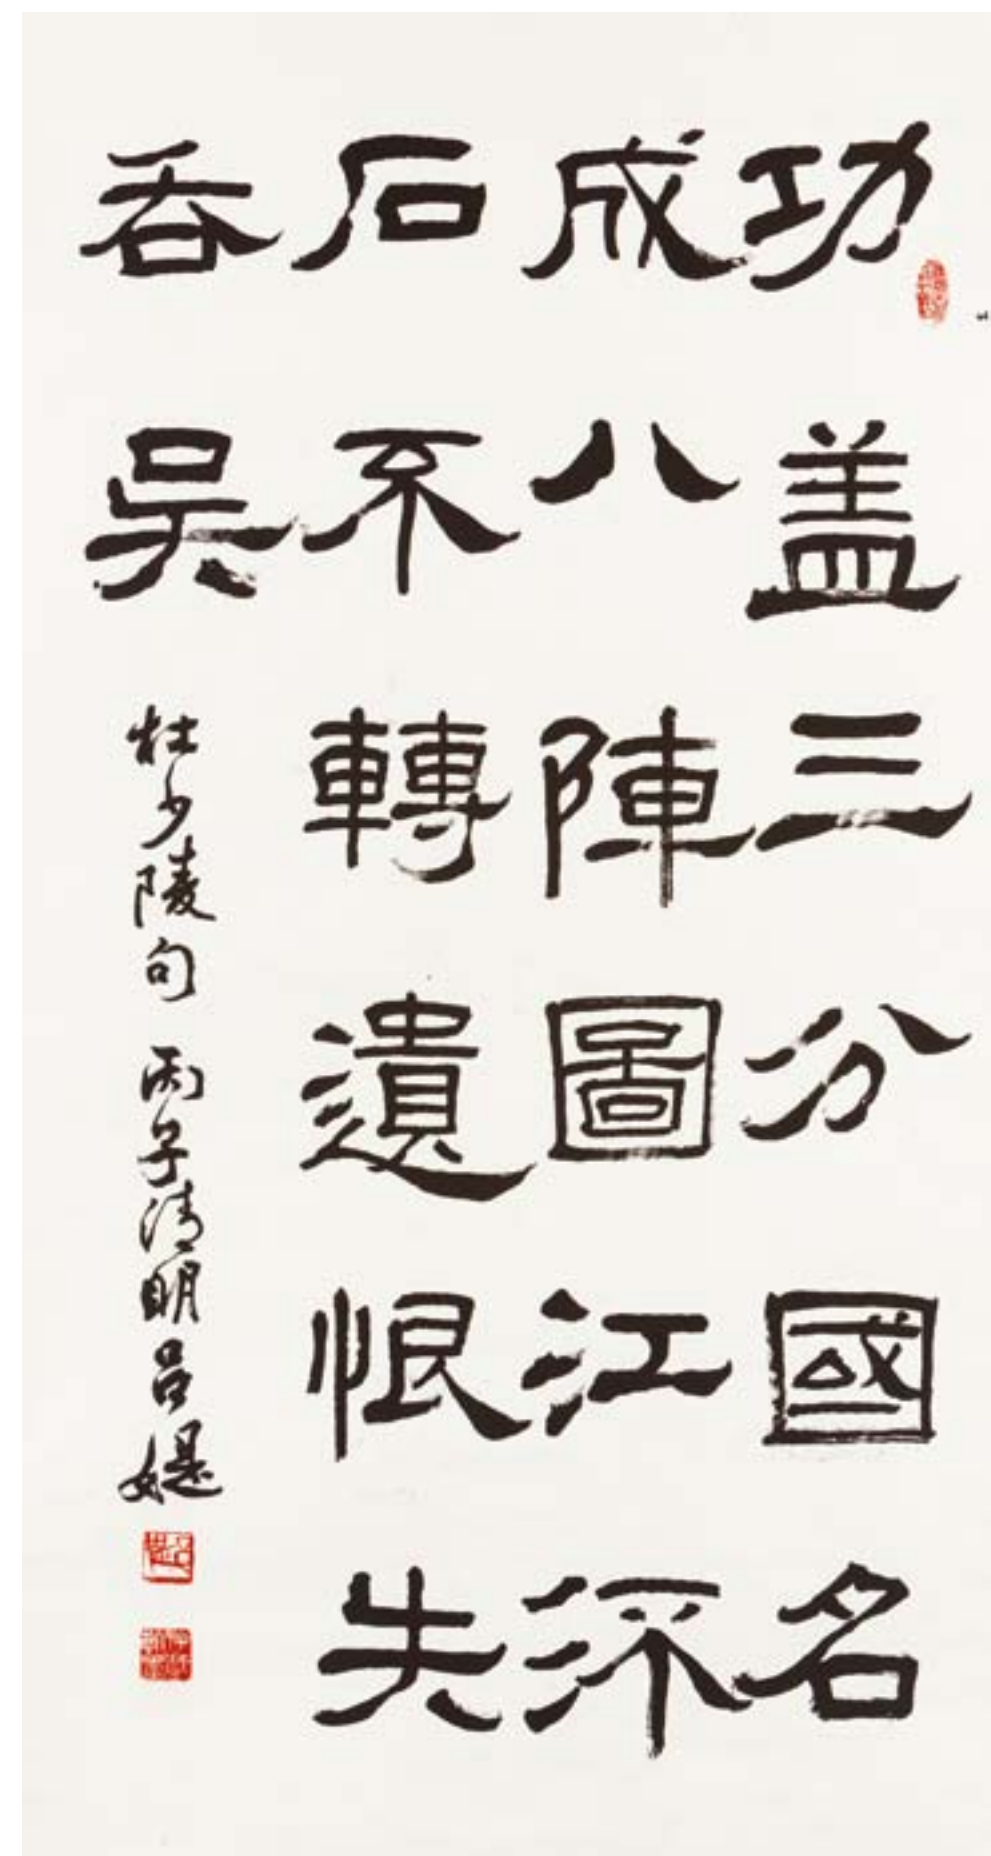 功盖三分國名
成八陣圖江㳅
石不轉遺恨失
吞吳
杜少陵句 丙子清明吕媞